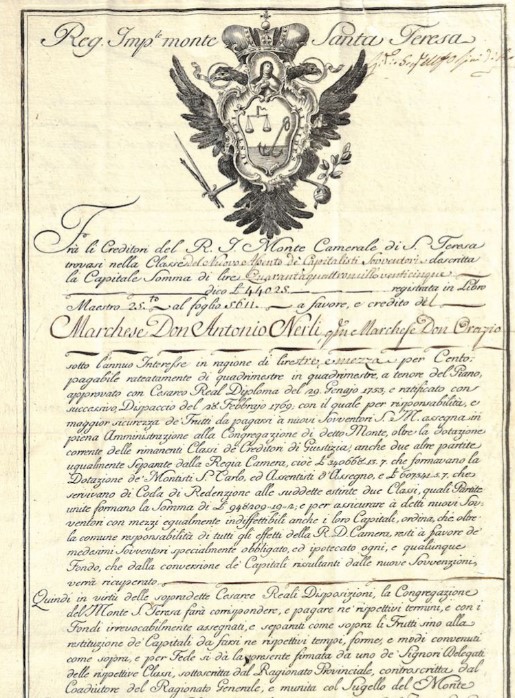 Reg. Imp.le monte Santa Teresa
Frà li Creditori del R. I. Monte Camerale di S. Teresa
trovasi nella Classe del Nuovo Aponto de Capitalisti Sovventori descritta
la Capitale Somma di lire Quarantaquattromille venticinque
dico £ 44025 registrata in Libro
Maestro 25.to al foglio 5611. a favore, e credito del
Marchese Don Antonio Nerli, qm Marchese Don Orazio
sotto l'annuo Interesse in ragione di lire tre, e mezza per Cento:
pagabile rateatamente di quadrimestre in quadrimestre, a tenore del Piano,
approvato con Cesareo Real Diploma del 29. Genajo 1753, e ratificato con
successivo Dispaccio del 28 Febbrajo 1769, con il quale per responsabilità, e
maggior sicurezza de' Frutti da pagarsi a' nuovi Sovventori S. M. assegna in
piena Amministrazione alla Congregazione di detto Monte, oltre la dotazione
corrente delle rimanenti Classi de' Creditori di Giustizia, anche due altre partite
ugualmente Separate dalla Regia Camera, cioè £ 13.7. che formavano la
Dotazione de' Montisti S. Carlo, ed Assentisti d'Assegno, e £ 7. che
servivano di Coda di Redenzione alle suddette estinte due Classi, quali Partite
unite formano la Somma di £ 948209.19.2, e per assicurare à detti nuovi Sov-
ventori con mezzi egualmente indiffettibili anche i loro Capitali, ordina, che oltre
la comune responsabilità di tutti gli effetti della R. D. Camera, resti à favore de'
medesimi Sovventori specialmente obbligato, ed ipotecato ogni, e qualunque
Fondo, che dalla conversione de' Capitali risultanti dalle nuove Sovvenzioni,
verrà ricuperato.
Quindi in virtù delle sopradette Cesaree Reali Disposizioni, la Congregazione
del Monte S. Teresa farà corrispondere, e pagare ne' rispettivi termini, e con i
Fondi irrevocabilmente assegnati, e separati come sopra li Frutti sino alla
restituzione de' Capitali da farsi ne' rispettivi tempi, forme, e modi convenuti
come sopra, e per Fede si dà la presente firmata da uno de' Signori Delegati
delle rispettive Classi, sottoscritta dal Ragionato Provinciale, controscritta dal
Coadiutore del Ragionato Generale, e munita col Sugello del Monte